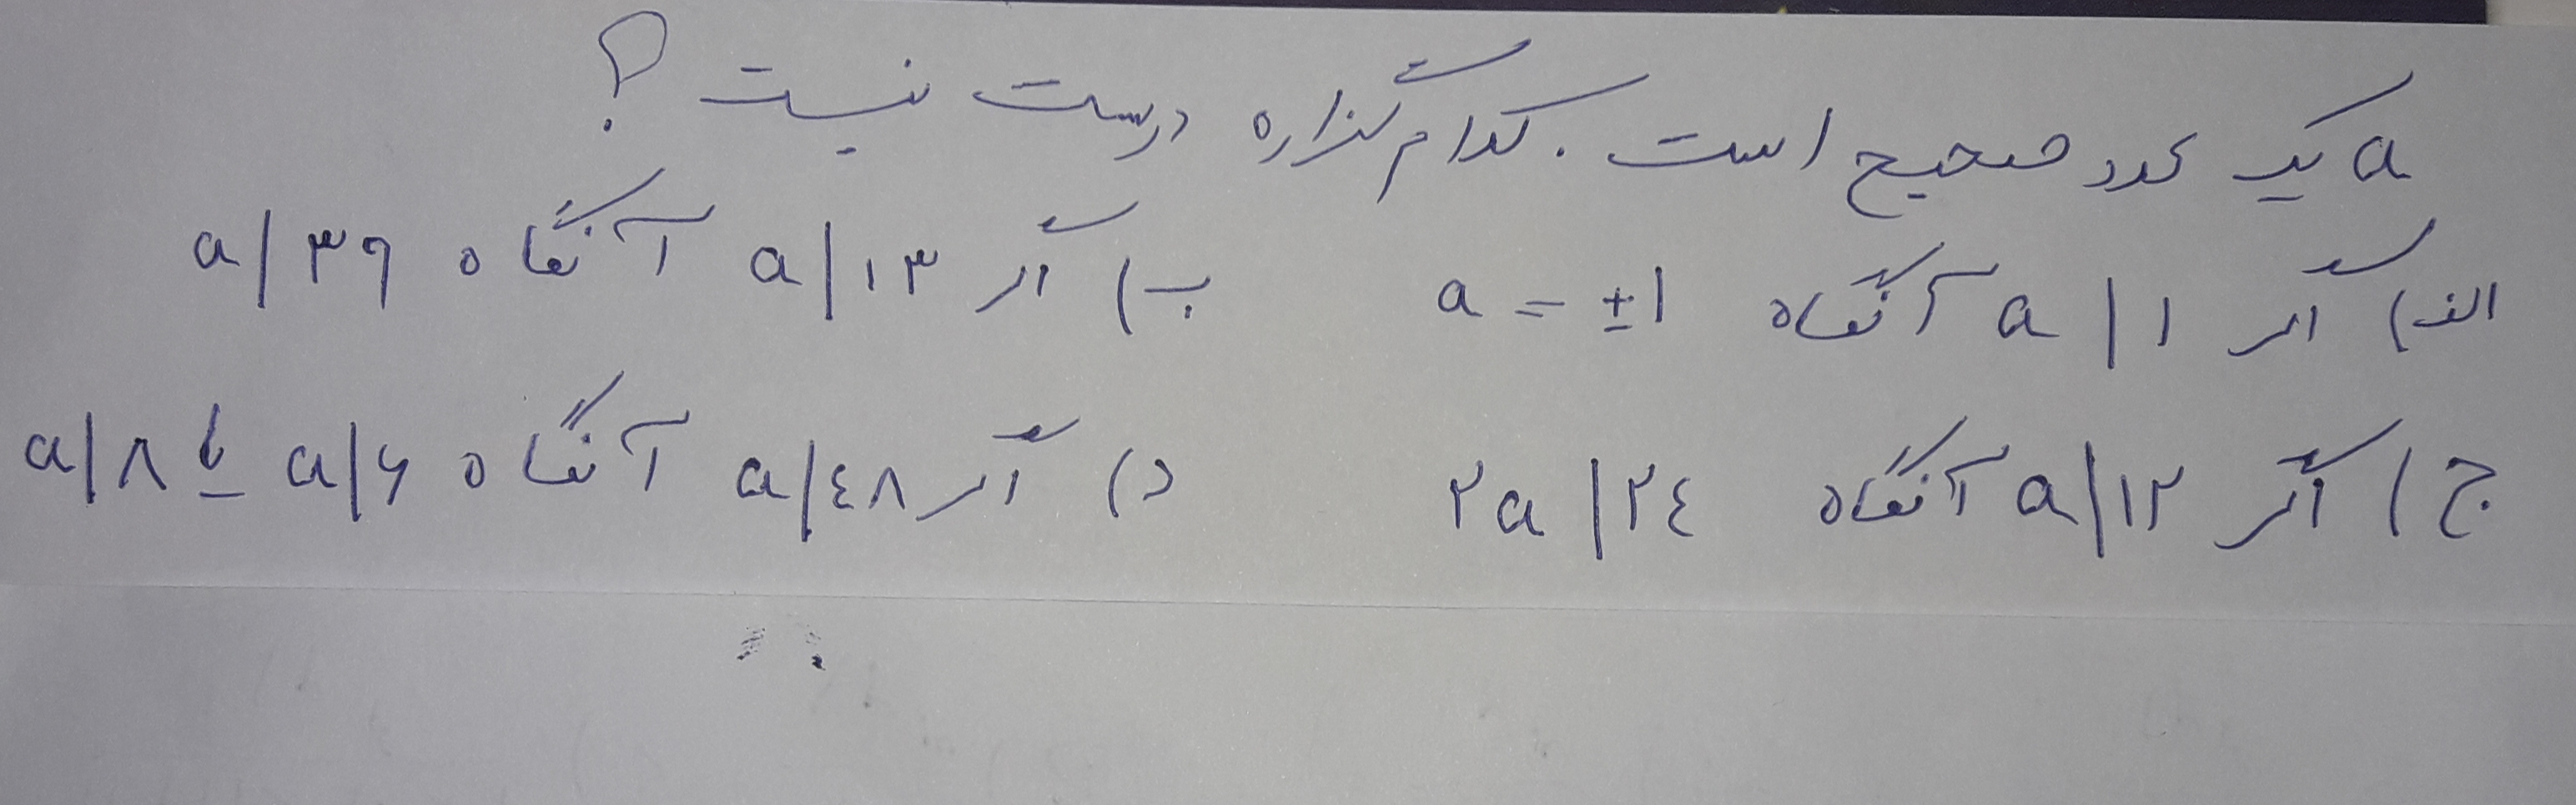 a یک عدد صحیح است. کدام گزاره درست نیست؟
الف) اگر a|۱ آنگاه a = ±۱ ب) اگر a|۱۳ آنگاه a|۳۹
ج) اگر a|۱۲ آنگاه ۲a|۲٤ د) اگر a|٤۸ آنگاه a|۶ یا a|۸